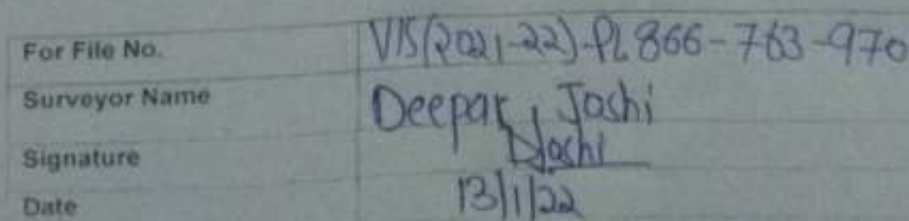 For File No. VIS(2021-22)-PL866-763-970
Surveyor Name Deepak Joshi
Signature DJoshi
Date 13/1/22